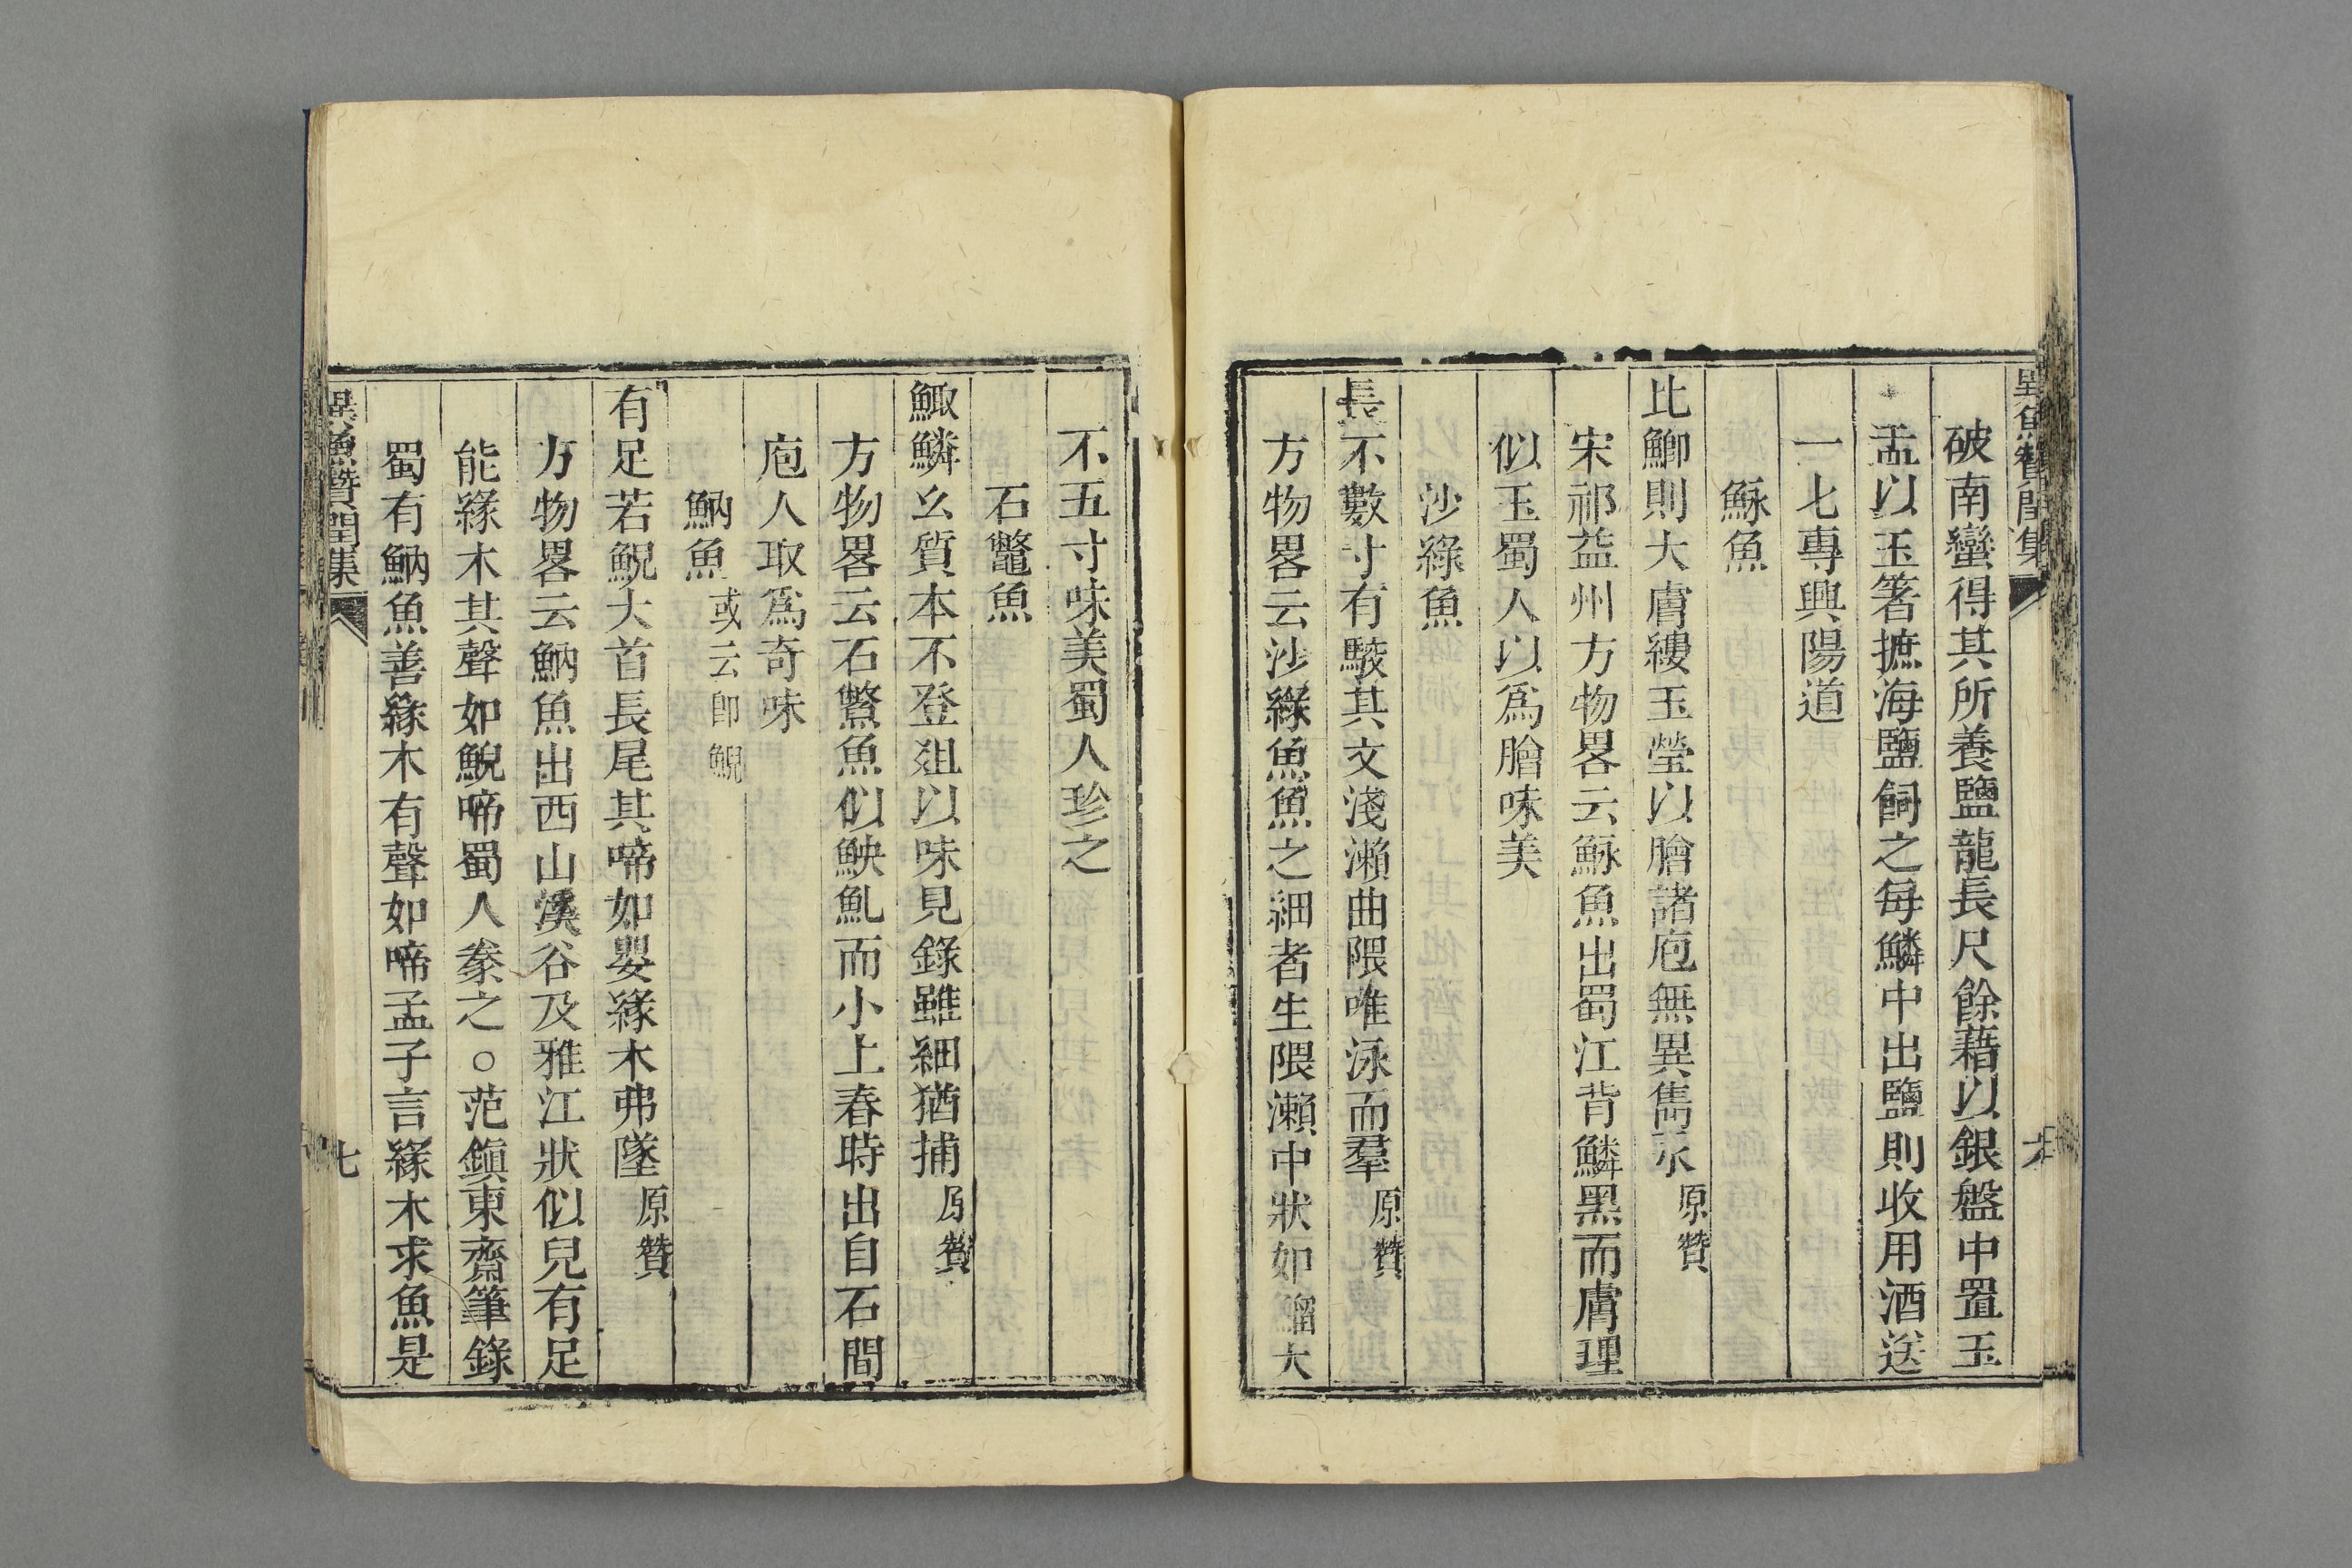 異魚贊閏集
破南蠻得其所養鹽龍長尺餘藉以銀盤中置玉
盂以玉箸摭海鹽飼之每鱗中出鹽則收用酒送
一七專興陽道
鮴魚
比鯽則大膚縷玉瑩以膾諸庖無異雋永原贊
宋祁益州方物畧云鮴魚出蜀江背鱗黑而膚理
似玉蜀人以爲膾味美
沙綠魚
長不數寸有駮其文淺瀨曲隈唯泳而羣原贊
方物畧云沙綠魚魚之細者生隈瀨中狀如鰡大
不五寸味美蜀人珍之
石鼈魚
鯫鱗么質本不登俎以味見錄雖細猶捕原贊
方物畧云石鱉魚似鮧魤而小上春時出自石間
庖人取爲奇味
魶魚或云卽鯢
有足若鯢大首長尾其啼如嬰緣木弗墜原贊
方物畧云魶魚出西山溪谷及雅江狀似兒有足
能緣木其聲如鯢啼蜀人豢之○范鎭東齋筆錄
蜀有魶魚善緣木有聲如啼孟子言緣木求魚是
異魚贊閏集 七